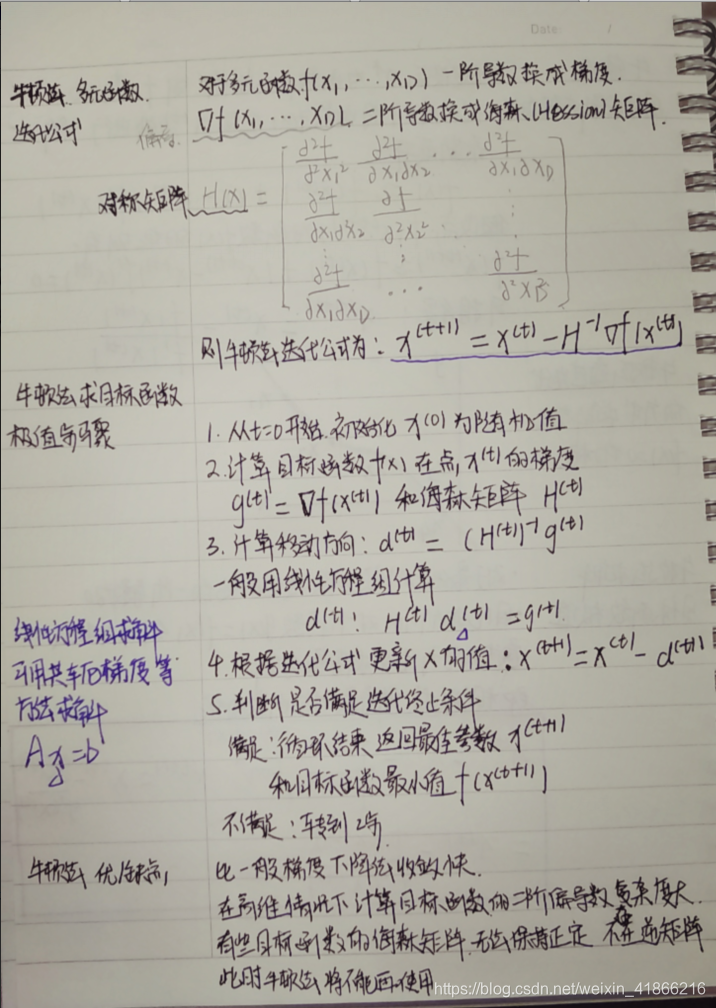 Date /
牛顿法 多元函数
迭代公式
对于多元函数 f(x1, ..., xD) 一阶导数换成梯度.
∇f(x1, ..., xD), 二阶导数换成海森(Hession)矩阵.
偏导
对称矩阵 H(x) = [ ∂²f/∂²x1² ∂²f/∂x1∂x2 ... ∂²f/∂x1∂xD
∂²f/∂x1∂x2 ∂f/∂²x2² ⋮
⋮ ⋮
∂²f/∂x1∂xD ... ∂²f/∂²xD² ]
则牛顿法迭代公式为: x^(t+1) = x^(t) - H^-1 ∇f(x^(t))
牛顿法求目标函数
极值步骤
1. 从t=0开始. 初始化 x(0) 为随机值
2. 计算目标函数f(x) 在点, x^(t) 的梯度
g^(t) = ∇f(x^(t)) 和海森矩阵 H^(t)
3. 计算移动方向: d^(t) = (H^(t))^-1 g^(t)
一般用线性方程组计算
d^(t): H^(t) d^(t) = g^(t)
线性方程组求解
可用共轭梯度等
方法求解
Ax=b
4. 根据迭代公式 更新x的值: x^(t+1) = x^(t) - d^(t+1)
5. 判断是否满足迭代终止条件
满足: 循环结束 返回最佳参数 x^(t+1)
和目标函数最小值 f(x^(t+1))
不满足: 转到2步
牛顿法 优缺点,
比一般梯度下降法收敛快.
在高维情况下计算目标函数的二阶偏导数复杂度大.
有些目标函数的海森矩阵 无法保持正定 不存在逆矩阵
此时牛顿法将不能再使用
https://blog.csdn.net/weixin_41866216